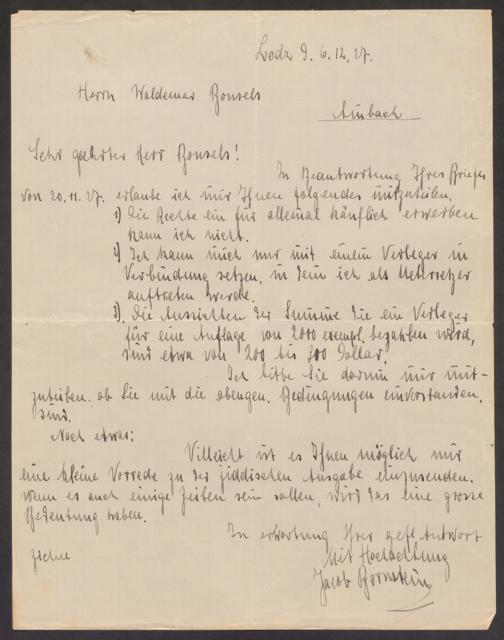 Lodz d. 6.12.27.
Herrn Waldemar Bonsels
Ambach
Sehr geehrter Herr Bonsels!
In Beantwortung Ihres Briefes
von 20.11.27. erlaube ich mir Ihnen folgendes mitzuteilen.
1) Die Rechte ein für allemal käuflich erwerben
kann ich nicht.
2) Ich kann mich nur mit einem Verleger in
Verbindung setzen, in dem ich als Uebersetzer
auftreten werde.
3). Die Aussichten der Summe die ein Verleger
für eine Auflage von 2000 exempl. bezahlen wird,
sind etwa von 200 bis 300 Dollar.
Ich bitte Sie darum mir mit-
zuteilen. ob Sie mit die obengen. Bedingungen einverstanden.
sind.
Noch etwas:
Villeicht ist es Ihnen möglich mir
eine kleine Vorrede zu der jiddischen Ausgabe einzusenden.
wenn es auch einige Zeilen sein sollen, wird das eine grosse
Bedeutung haben.
In erwartung Ihrer gefl. Antwort
Mit Hochachtung
Jacob Bornstein